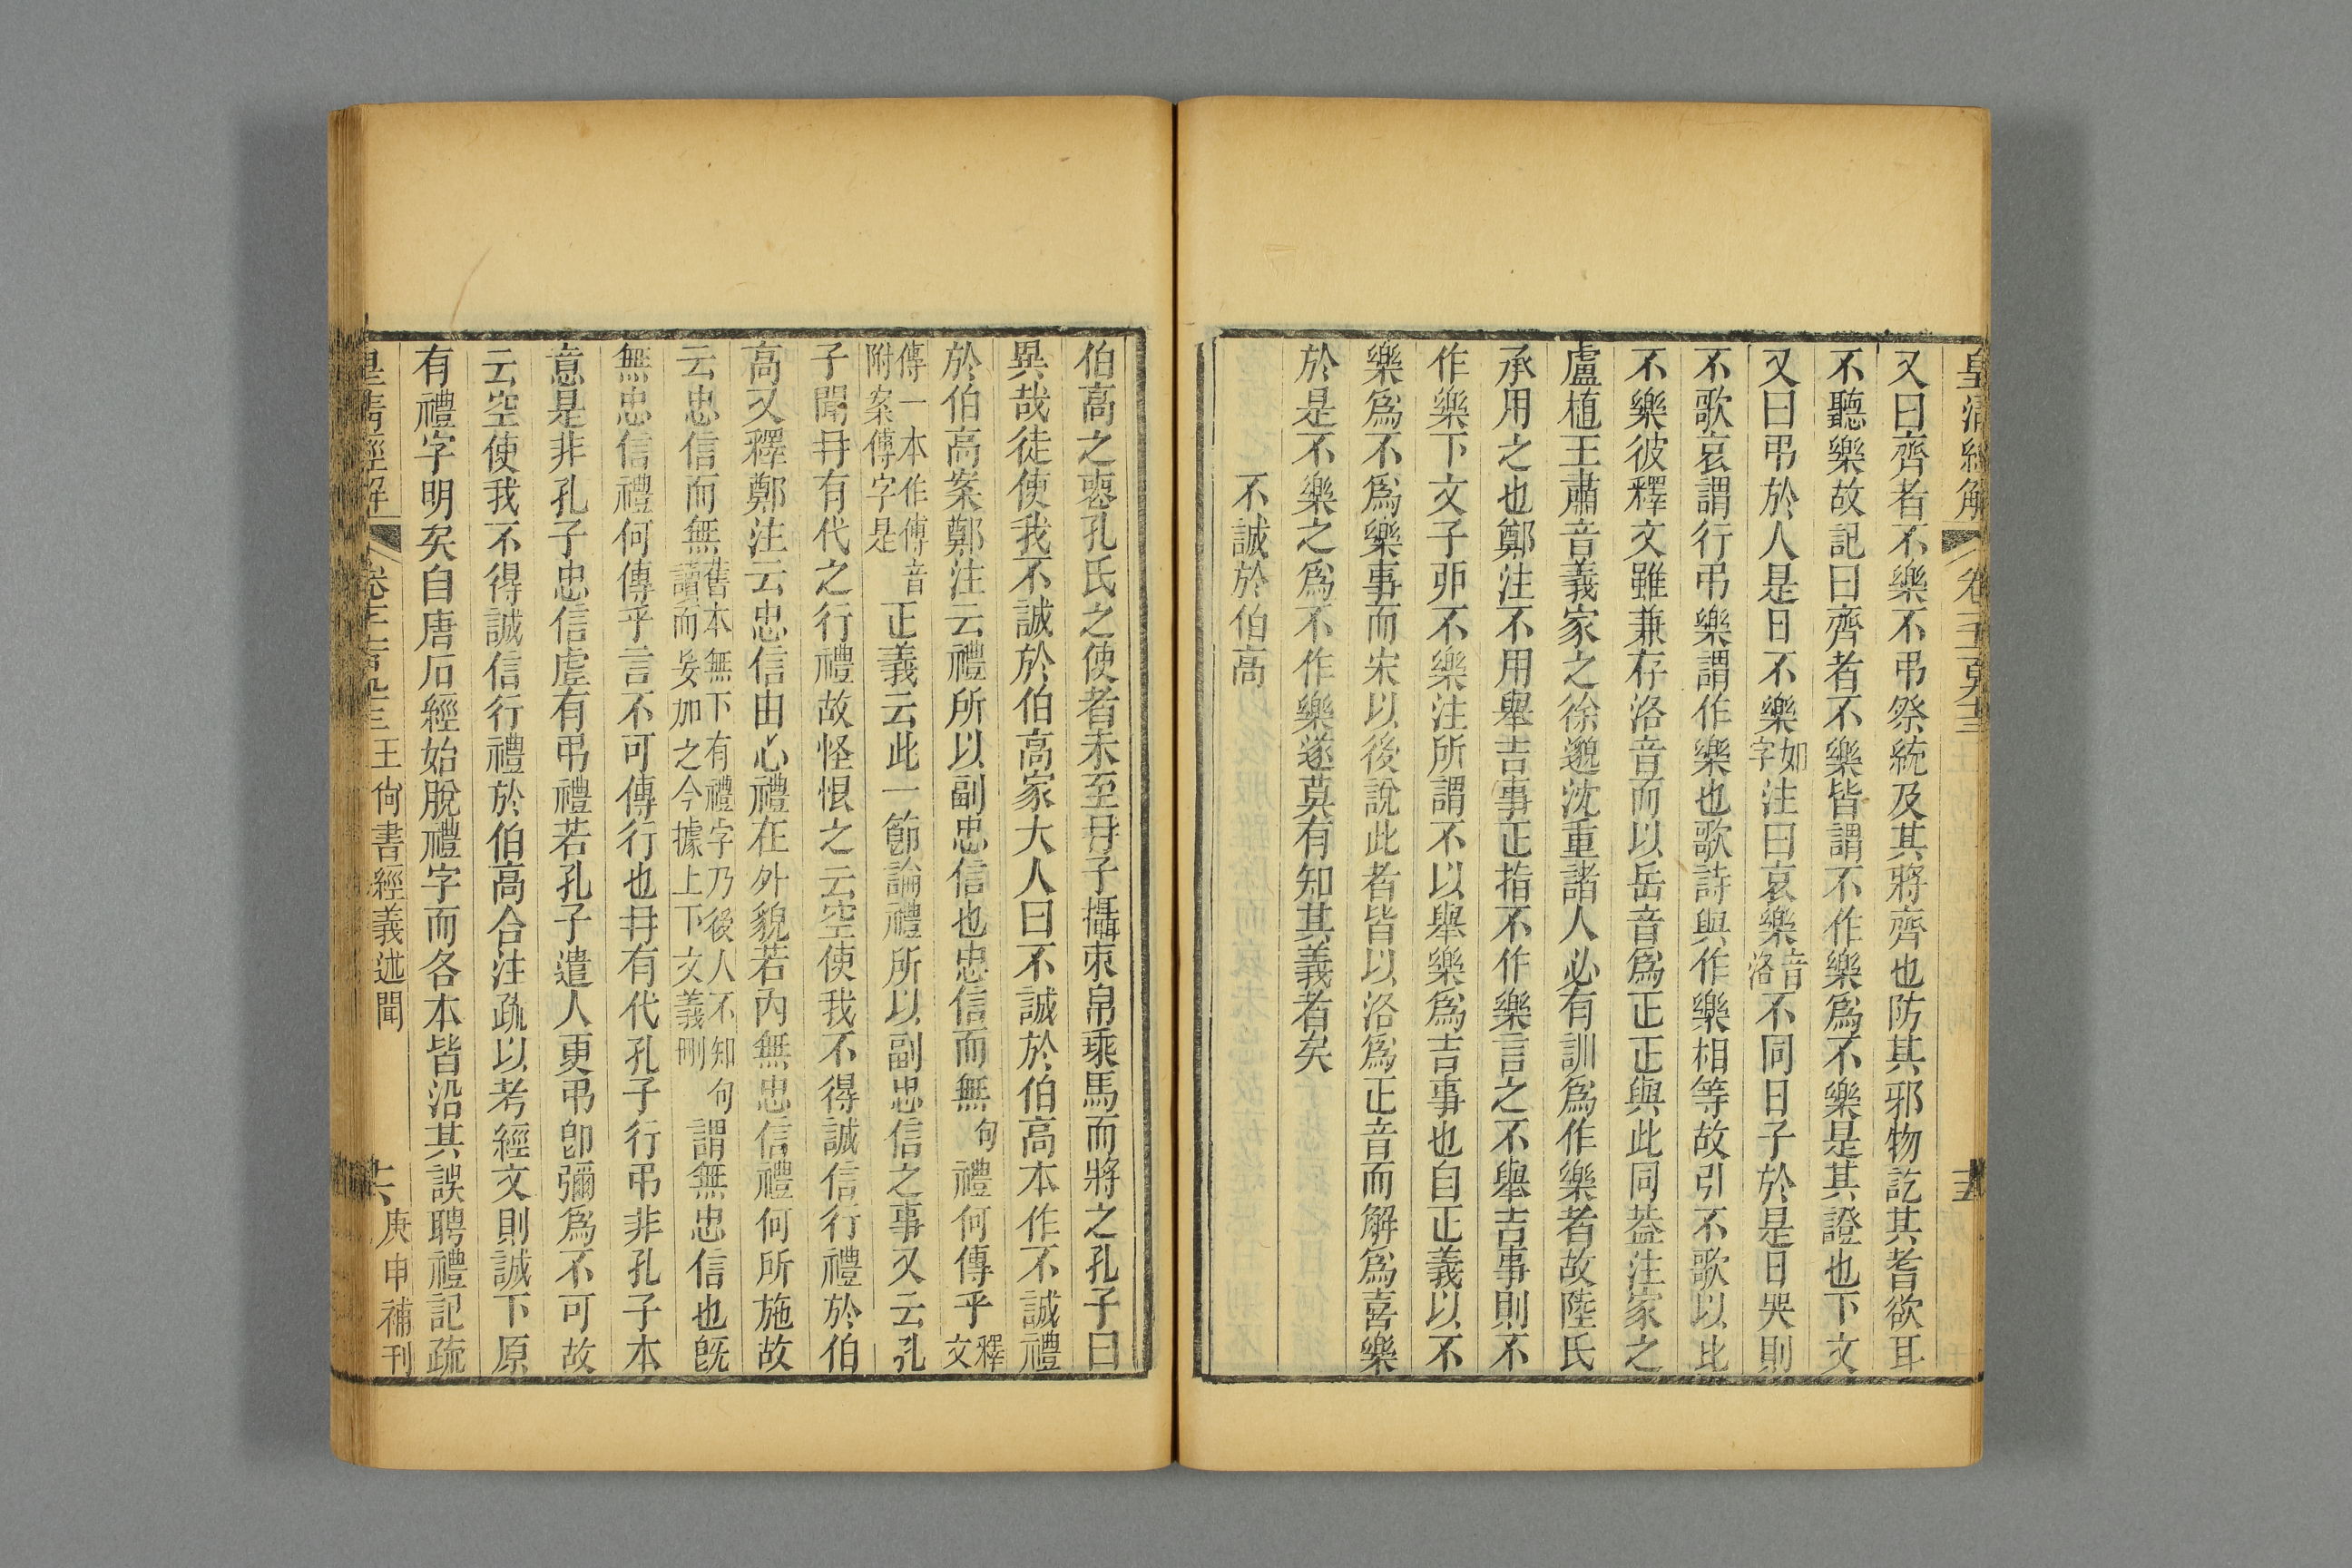 皇清經解
又曰齊者不樂不弔祭統及其將齊也防其邪物訖其耆欲耳
不聽樂故記曰齊者不樂皆謂不作樂爲不樂是其證也下文
又曰弔於人是日不樂如字注曰哀樂音洛不同日子於是日哭則
不歌哀謂行弔樂謂作樂也歌詩與作樂相等故引不歌以比
不樂彼釋文雖兼存洛音而以岳音爲正正與此同葢注家之
盧植王肅音義家之徐邈沈重諸人必有訓爲作樂者故陸氏
承用之也鄭注不用舉吉事正指不作樂言之不舉吉事則不
作樂下文子卯不樂注所謂不以舉樂爲吉事也自正義以不
樂爲不爲樂事而宋以後說此者皆以洛爲正音而解爲喜樂
於是不樂之爲不作樂遂莫有知其義者矣
不誠於伯高
伯高之喪孔氏之使者未至冄子攝束帛乘馬而將之孔子曰
異哉徒使我不誠於伯高家大人曰不誠於伯高本作不誠禮
於伯高案鄭注云禮所以副忠信也忠信而無句禮何傳乎釋文
傳一本作傅音附案傅字是正義云此一節論禮所以副忠信之事又云孔
子聞冄有代之行禮故怪恨之云空使我不得誠信行禮於伯
高又釋鄭注云忠信由心禮在外貌若內無忠信禮何所施故
云忠信而無舊本無下有禮字乃後人不知句讀而妄加之今據上下文義刪謂無忠信也旣
無忠信禮何傳乎言不可傳行也冄有代孔子行弔非孔子本
意是非孔子忠信虛有弔禮若孔子遣人更弔卽彌爲不可故
云空使我不得誠信行禮於伯高合注疏以考經文則誠下原
有禮字明矣自唐石經始脫禮字而各本皆沿其誤聘禮記疏
皇清經解 王尙書經義述聞 庚申補刊